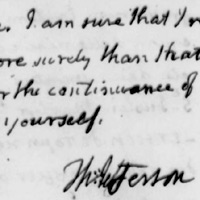 I am sure that I
ore surely than that
r the continuance of
yourself.
Th: Jefferson